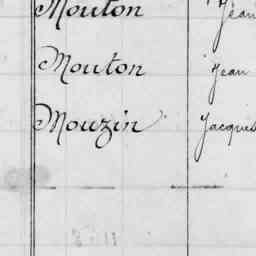 Mouton Jean
Mouton Jean
Mouzin Jacques